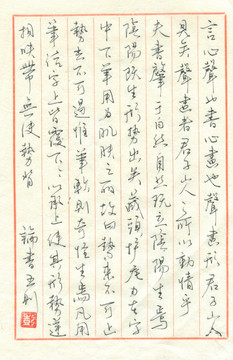 言心聲也書心畫也聲畫形君子小人
見矣聲畫者君子小人之所以動情乎
夫書肇于自然自然既立陰陽生焉
陰陽既生形勢出矣藏頭護尾力在字
中下筆用力肌膚之麗故曰勢來不可止
勢去不可遏惟筆軟則奇怪生焉凡用
筆結字上皆覆下下以承上使其形勢遞
相映帶無使勢背 論書五則